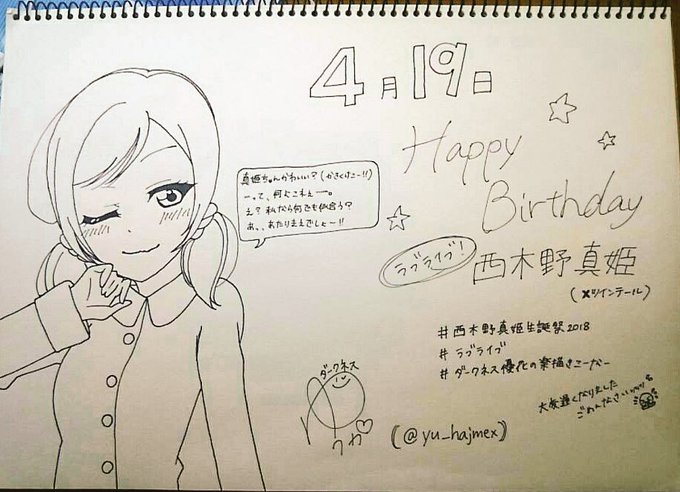 4月19日
Happy
Birthday
ラブライブ!
西木野真姫
(※ツインテール)
真姫ちゃんかわいい?(かきくけこー!!)
ーって、何よこれぇー。
え?私なら何でも似合う?
あ、、あたりまえでしょ〜!!
#西木野真姫生誕祭2018
# ラブライブ
#ダークネス優花の楽描きこーなー
大変遅くなりました
ごめんなさい
ダークネス
(@yu_hajmex)